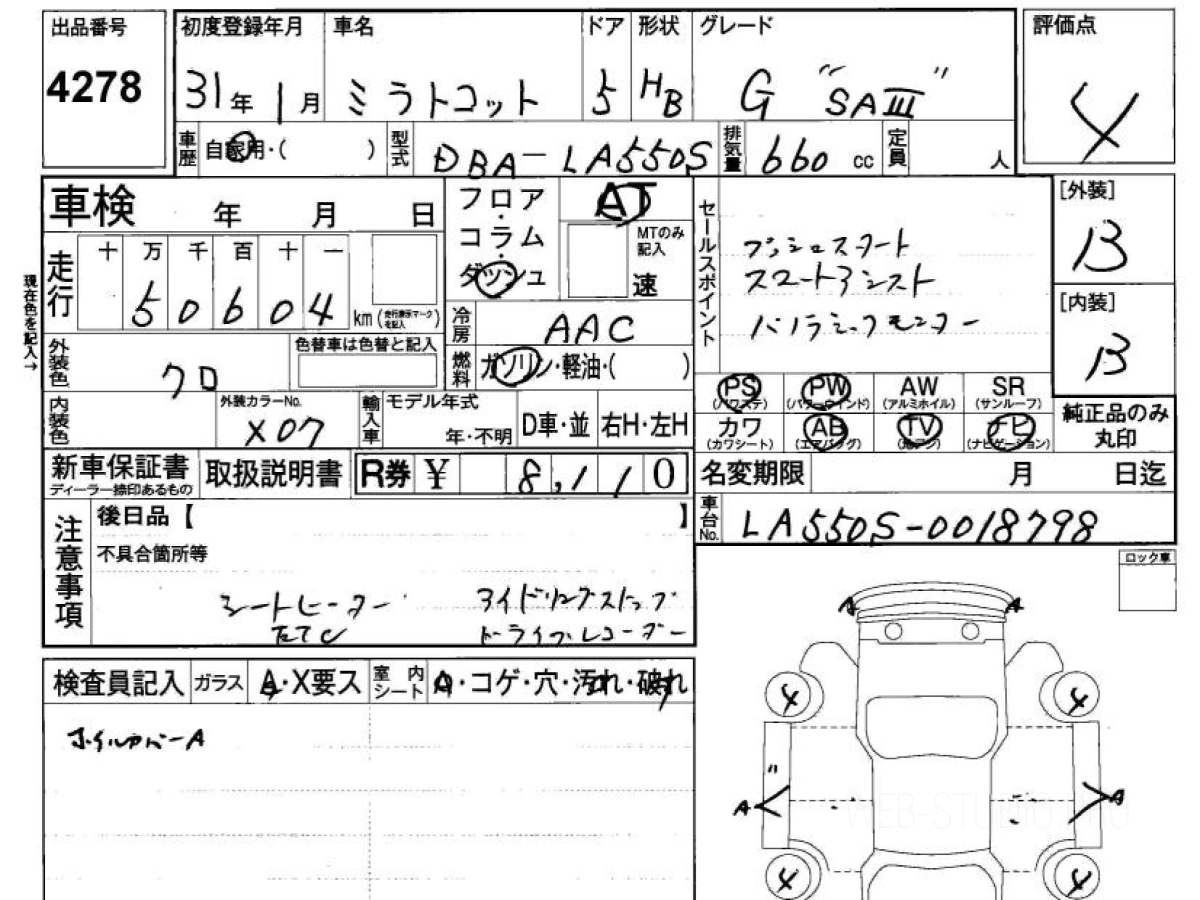 出品番号 初度登録年月 車名 ドア 形状 グレード 評価点
4278 31年 1月 ミラトコット 5 HB G "SAⅢ" 4
車歴 自家用・( ) 型式 DBA-LA550S 排気量 660 cc 定員 人
車検 年 月 日
フロア・コラム・ダッシュ AT
MTのみ記入
速
セールスポイント
プッシュスタート
スマートアシスト
パノラミックモニター
[外装]
B
[内装]
B
現在色を記入→
走行 十 万 千 百 十 一
50604 km (走行表示マークを記入)
冷房 AAC
外装色 クロ 色替車は色替と記入
燃料 ガソリン・軽油・( )
PS (パワステ) PW (パワーウインド) AW (アルミホイル) SR (サンルーフ)
カワ (カワシート) AB (エアバッグ) TV (地デジ) ナビ (ナビゲーション)
純正品のみ丸印
内装色 外装カラーNo. X07 輸入車 モデル年式 年・不明 D車・並 右H・左H
新車保証書 ディーラー捺印あるもの 取扱説明書 R券 ¥ 8,110
名変期限 月 日迄
車台No. LA550S-0018798
注意事項
後日品【 】
不具合箇所等
シートヒーター アイドリングストップ
ドライブレコーダー
ロック車
検査員記入 ガラス A・X要ス 室内シート A・コゲ・穴・汚れ・破れ
ホイルカバーA
A A
4 4
"
A A
4 4
WEB-STUDIO.PRO